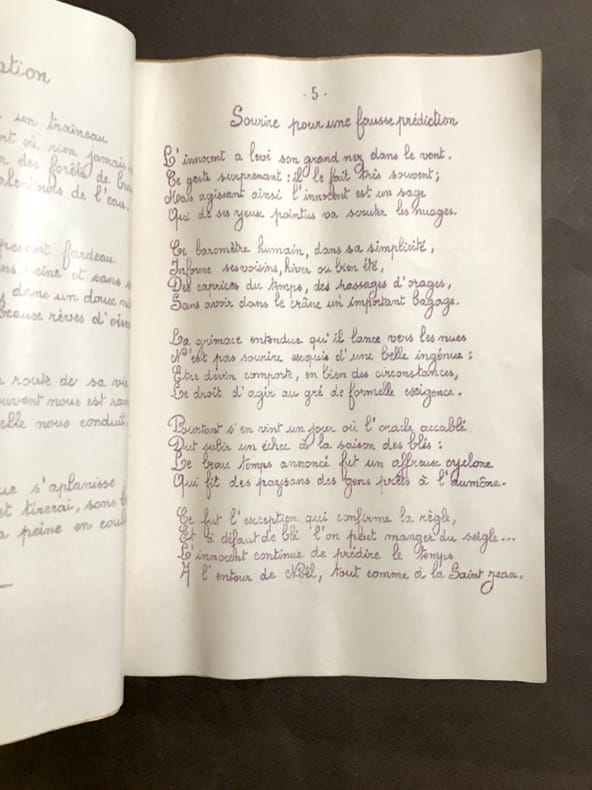 ation
un traîneau
où rien jamais
des forêts de
alentours de l'eau.
présent fardeau
peine et sans
dans un doux
beaux rêves d'
route de sa vie
souvent nous est
elle nous conduit.
que s'aplanisse
et tirerai, sans
peine en
- 5 -
Sourire pour une fausse prédiction
L'innocent a levé son grand nez dans le vent.
Ce geste surprenant : il le fait très souvent ;
Mais agissant ainsi l'innocent est un sage
Qui de ses yeux pointus va scruter les nuages.
Ce baromètre humain, dans sa simplicité,
Informe ses voisins, hiver ou bien été,
Des caprices du temps, des passages d'orages,
Sans avoir dans le crâne un important bagage.
La grimace entendue qu'il lance vers les nues
N'est pas sourire exquis d'une belle ingénue :
Etre devin comporte, en bien des circonstances,
Le droit d'agir au gré de formelle exigence.
Pourtant s'en vint un jour où l'oracle accablé
Dut subir un échec à la saison des blés :
Le beau temps annoncé fut un affreux cyclone
Qui fit des paysans des gens prêts à l'aumône.
Ce fut l'exception qui confirme la règle,
Et à défaut de blé l'on peut manger du seigle...
L'innocent continue de prédire le temps
A l'entour de Noël, tout comme à la Saint Jean.